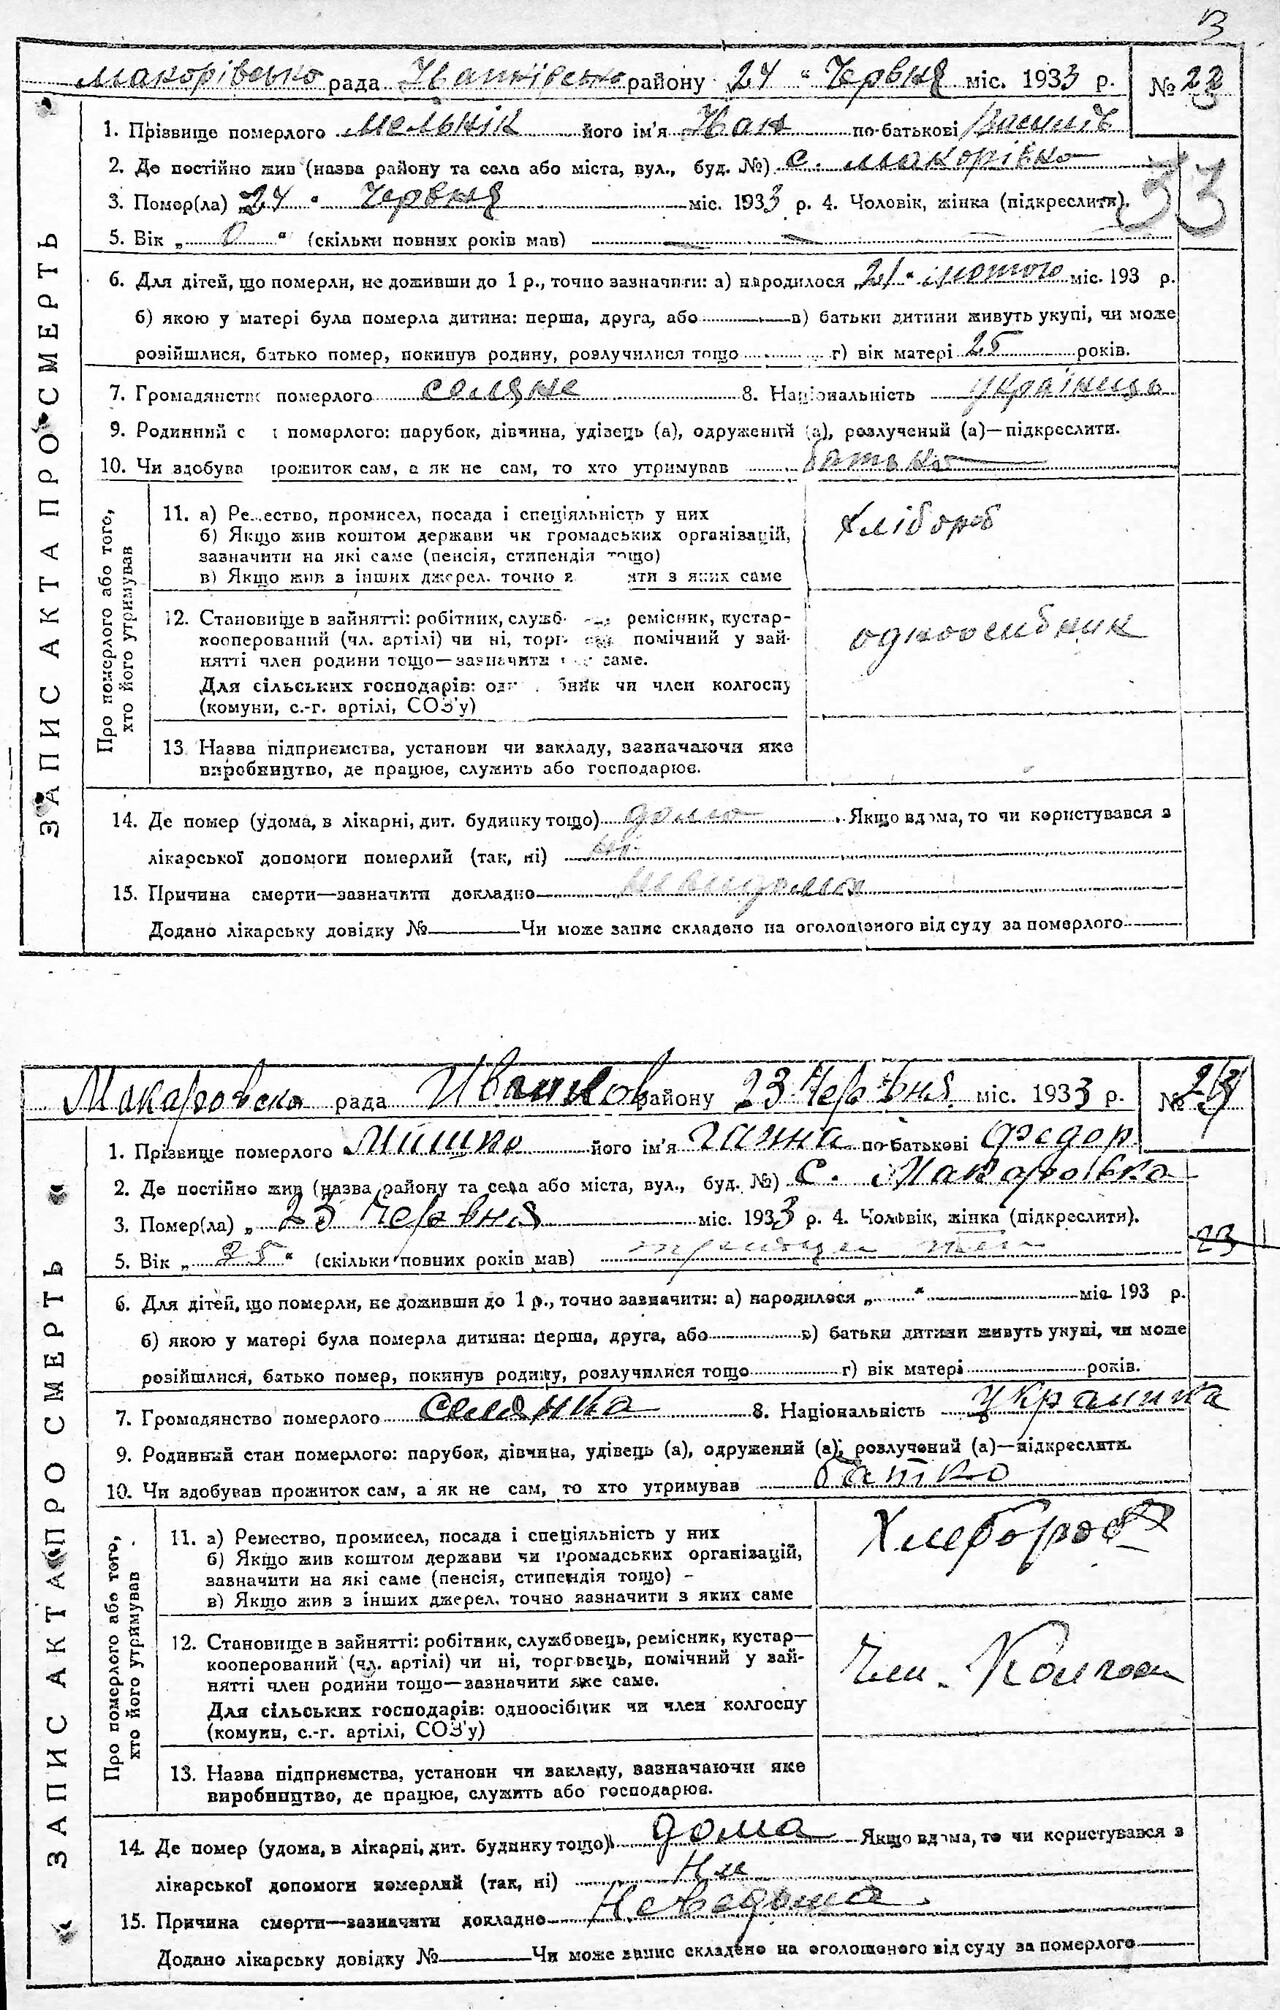 13
Макорівсько рада Іванківсько району 24 „ Червня міс. 1933 р. № 22
ЗАПИС АКТА ПРО СМЕРТЬ
1. Прізвище померлого Мельнік його ім'я Іван по-батькові Василів
2. Де постійно жив (назва району та села або міста, вул., буд. №) с. Макорівко
3. Помер(ла) „24 " Червня міс. 1933 р. 4. Чоловік, жінка (підкреслити).
33
5. Вік „ 0 " (скільки повних років мав)
6. Для дітей, що померли, не доживши до 1 р., точно зазначити: а) народилося „21" лютого міс. 193 р.
б) якою у матері була померла дитина: перша, друга, або в) батьки дитини живуть укупі, чи може
розійшлися, батько помер, покинув родину, розлучилися тощо г) вік матері 25 років.
7. Громадянство померлого селяне 8. Національність українець
9. Родинний с померлого: парубок, дівчина, удівець (а), одружений (а), розлучений (а)—підкреслити.
10. Чи здобува прожиток сам, а як не сам, то хто утримував батько
Про померлого або того,
хто його утримував
11. а) Ре..ество, промисел, посада і спеціяльність у них
б) Якщо жив коштом держави чи громадських організацій,
зазначити на які саме (пенсія, стипендія тощо)
в) Якщо жив з інших джерел. точно з яких саме
хлібороб
12. Становище в зайнятті: робітник, служб ремісник, кустар-
кооперований (чл. артілі) чи ні, торг помічний у зай-
нятті член родини тощо—зазначити саме.
Для сільських господарів: од бник чи член колгоспу
(комуни, с.-г. артілі, СОЗ'у)
одноосибник
13. Назва підприємства, установи чи закладу, зазначаючи яке
виробництво, де працює, служить або господарює.
14. Де помер (удома, в лікарні, дит. будинку тощо) дома Якщо вдома, то чи користувався з
лікарської допомоги померлий (так, ні) ні
15. Причина смерти—зазначити докладно
Додано лікарську довідку № Чи може запис складено на оголошеного від суду за померлого
Макаровска рада Иванков району 23 Червня міс. 1933 р. №
ЗАПИС АКТА ПРО СМЕРТЬ
1. Прізвище померлого Мишко його ім'я Ганна по-батькові Федор
2. Де постійно жив (назва району та села або міста, вул., буд. №) с. Макаровка
3. Помер(ла) „ 23 Червня міс. 1933 р. 4. Чоловік, жінка (підкреслити).
23
5. Вік „ 35 " (скільки повних років мав)
6. Для дітей, що померли, не доживши до 1 р., точно зазначити: а) народилося „ " міс 193 р.
б) якою у матері була померла дитина: перша, друга, або в) батьки дитини живуть укупі, чи може
розійшлися, батько помер, покинув родину, розлучилися тощо г) вік матері років.
7. Громадянство померлого селянка 8. Національність Украинка
9. Родинний стан померлого: парубок, дівчина, удівець (а), одружений (а), розлучений (а)—підкреслити.
10. Чи здобував прожиток сам, а як не сам, то хто утримував батко
Про померлого або того,
хто його утримував
11. а) Ремество, промисел, посада і спеціяльність у них
б) Якщо жив коштом держави чи громадських організацій,
зазначити на які саме (пенсія, стипендія тощо)
в) Якщо жив з інших джерел. точно зазначити з яких саме
Хлебороб
12. Становище в зайнятті: робітник, службовець, ремісник, кустар—
кооперований (чл. артілі) чи ні, торговець, помічний у зай-
нятті член родини тощо—зазначити яке саме.
Для сільських господарів: одноосібник чи член колгоспу
(комуни, с.-г. артілі, СОЗ'у)
Член. Колгосп
13. Назва підприємства, установи чи закладу, зазначаючи яке
виробництво, де працює, служить або господарює.
14. Де помер (удома, в лікарні, дит. будинку тощо) дома Якщо вдома, то чи користувався з
лікарської допомоги померлий (так, ні) Ни
15. Причина смерти—зазначити докладно Неведома
Додано лікарську довідку № Чи може запис складено на оголошеного від суду за померлого